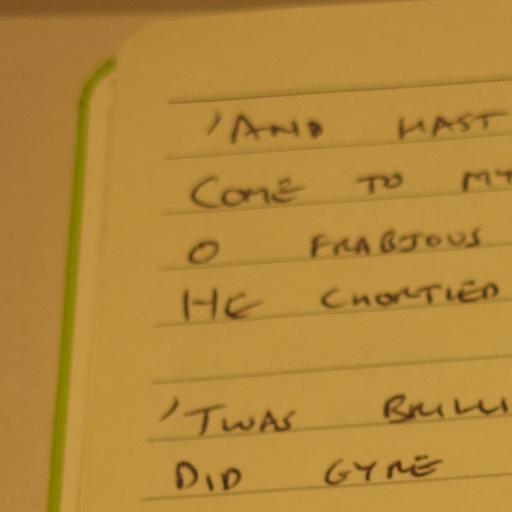 'AND HAST
COME TO MY
O FRABJOUS
HE CHORTLED

'TWAS BRILLI
DID GYRE